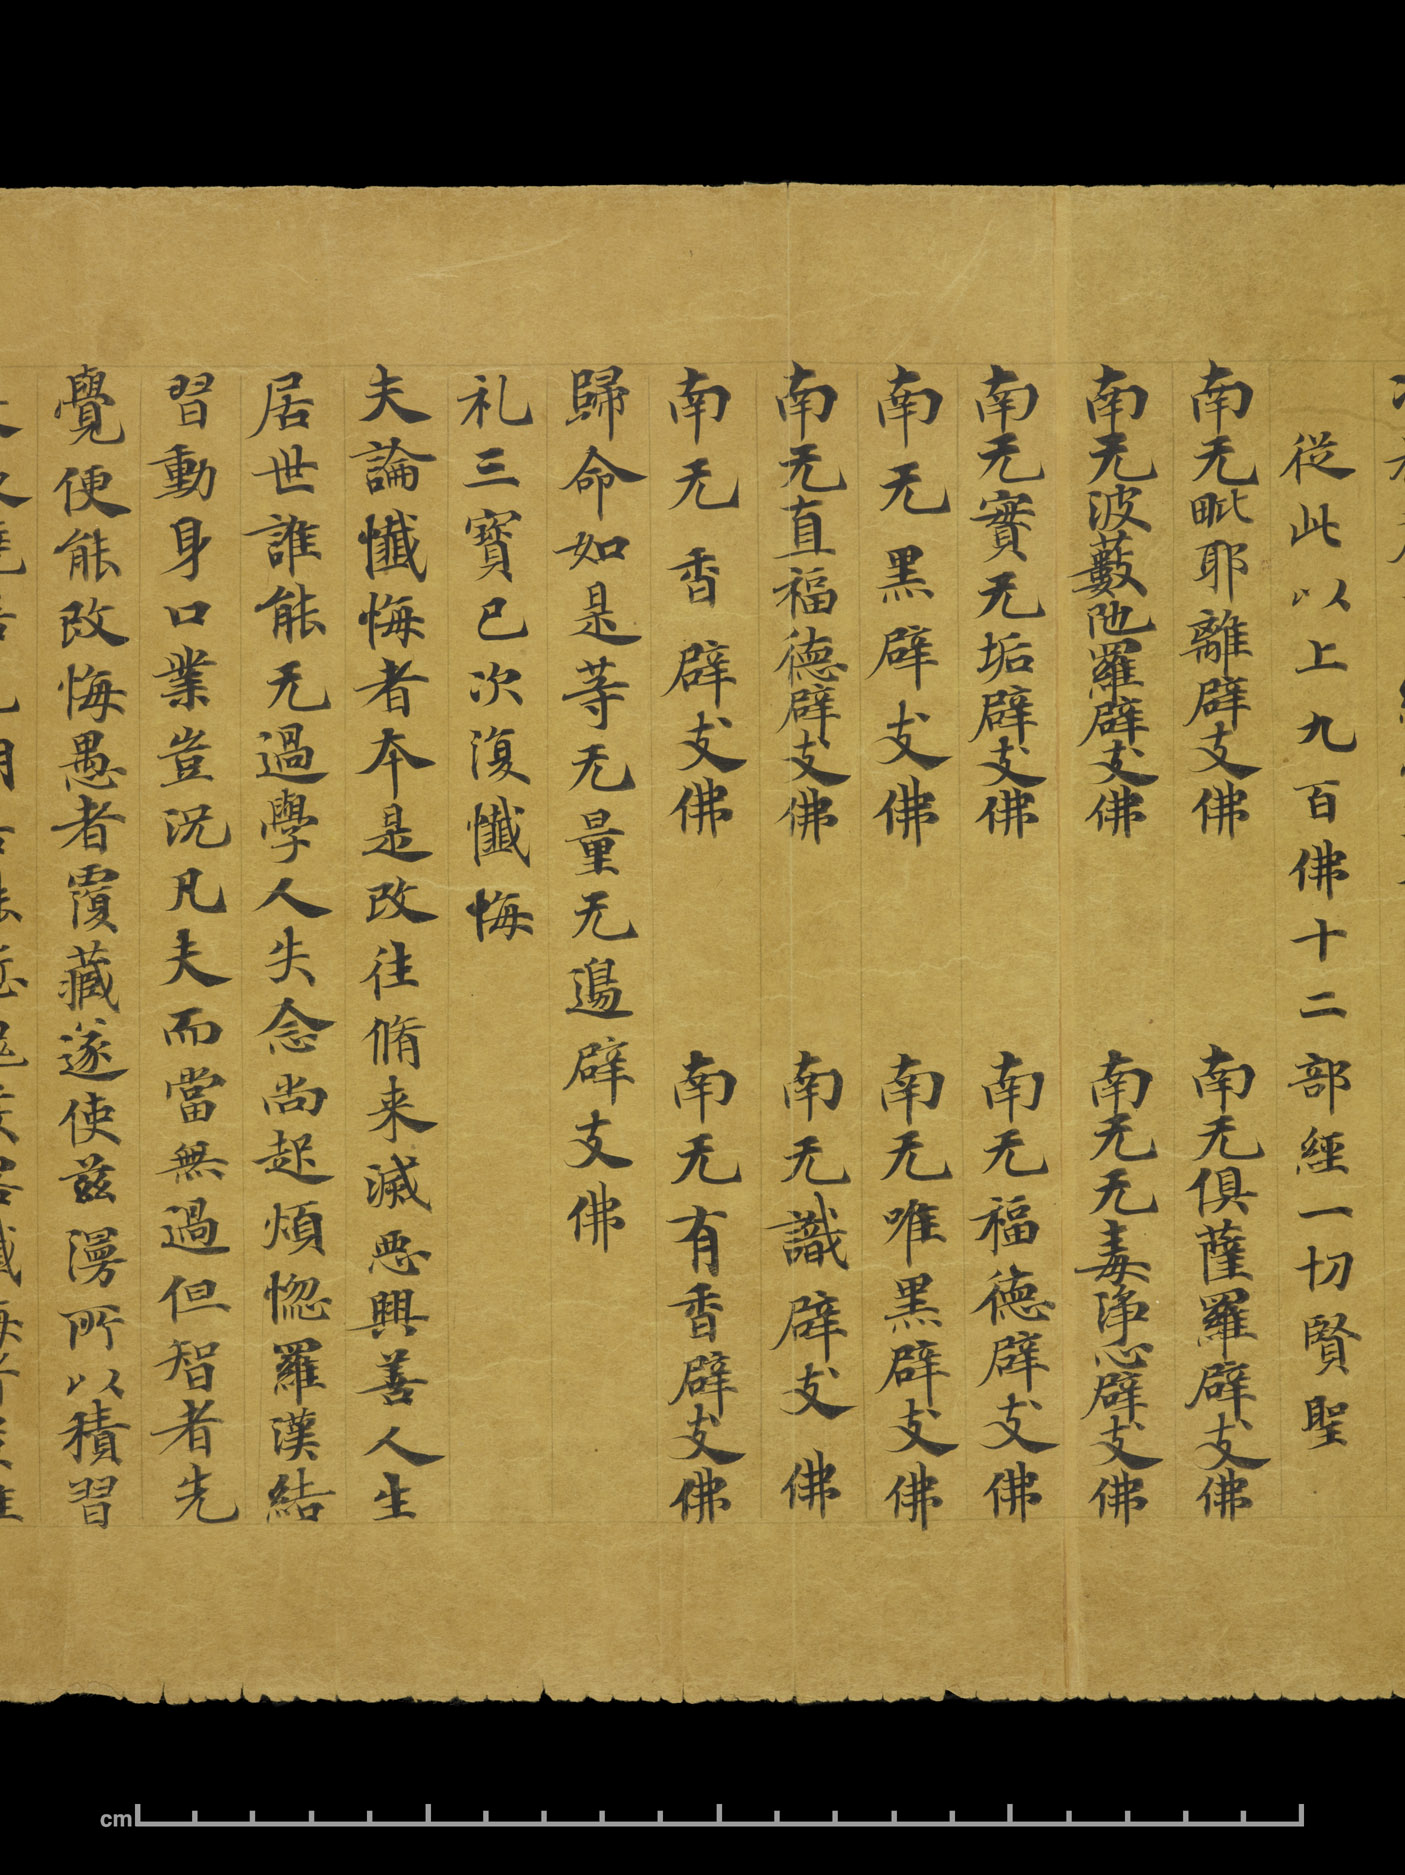 從此以上九百佛十二部經一切賢聖
南无毗耶離辟支佛 南无俱薩羅辟支佛
南无波藪陁羅辟支佛 南无无毒淨心辟支佛
南无寶无垢辟支佛 南无福德辟支佛
南无黑辟支佛 南无唯黑辟支佛
南无直福德辟支佛 南无識辟支佛
南无香辟支佛 南无有香辟支佛
歸命如是等无量无邊辟支佛
礼三寶已次復懺悔
夫論懺悔者本是改往脩来滅惡興善人生
居世誰能无過學人失念尚起煩惚羅漢結
習動身口業豈況凡夫而當無過但智者先
覺便能改悔愚者覆藏遂使兹漫所以積習
cm